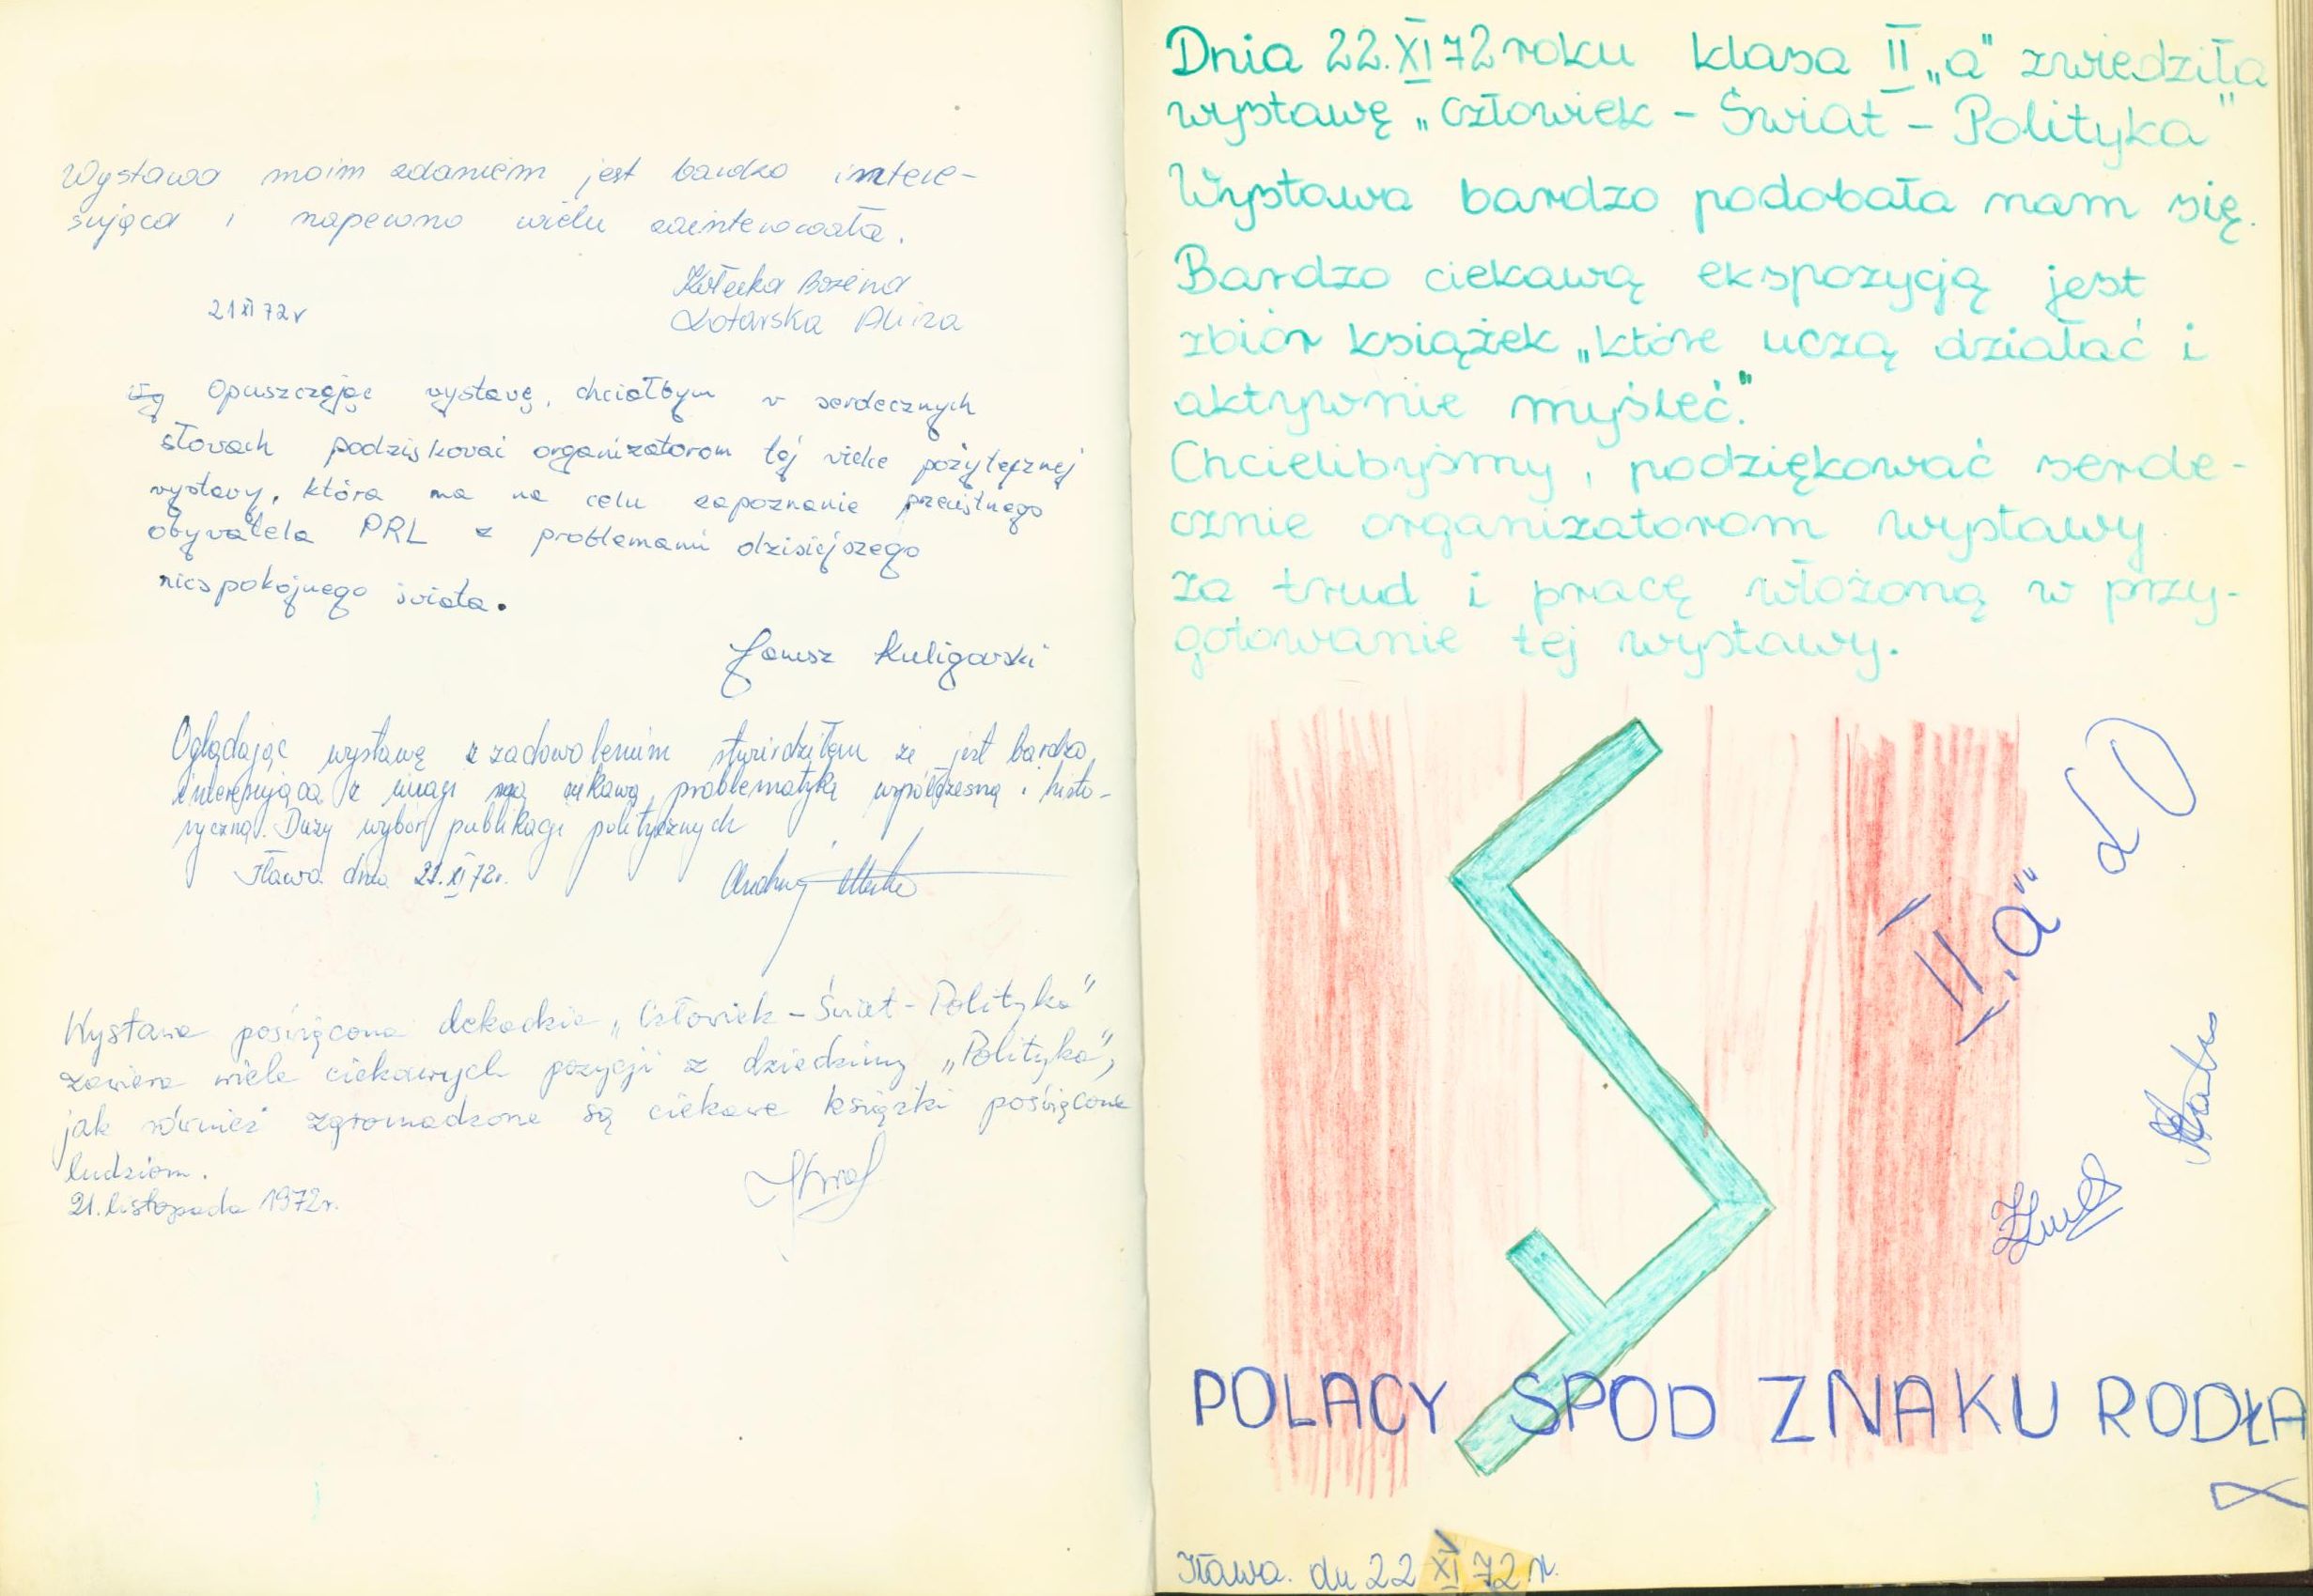 Wystawa moim zdaniem jest bardzo intere-
sująca i napewno wielu
Kołecka Bożena
Lotarska Alina
21 XI 72 r
Opuszczając wystawę, chciałbym w serdecznych
słowach podziękować organizatorom tej wielce pożytecznej
wystawy, która ma na celu zapoznanie przeciętnego
obywatela PRL z problemami dzisiejszego
niespokojnego świata.
Janusz Kuligowski
Oglądając wystawę z zadowoleniem stwierdziłem że jest bardzo
interesująca z uwagi na ciekawą problematykę współczesną i histo-
ryczną. Duży wybór publikacji politycznych
Iława dnia 21.XI 72r.
Wystawa poświęcona dekadzie „Człowiek – Świat – Polityka"
zawiera wiele ciekawych pozycji z dziedziny „Polityka",
jak również zgromadzone są ciekawe książki poświęcone
ludziom.
21. listopada 1972r.
Dnia 22.XI 72 roku klasa II „a" zwiedziła
wystawę „Człowiek – Świat – Polityka"
Wystawa bardzo podobała nam się.
Bardzo ciekawą ekspozycją jest
zbiór książek „które uczą działać i
aktywnie myśleć."
Chcielibyśmy, podziękować serde-
cznie organizatorom wystawy
za trud i pracę włożoną w przy-
gotowanie tej wystawy.
II „a" LO
POLACY SPOD ZNAKU RODŁA
Iława. dn 22 XI 72 r.